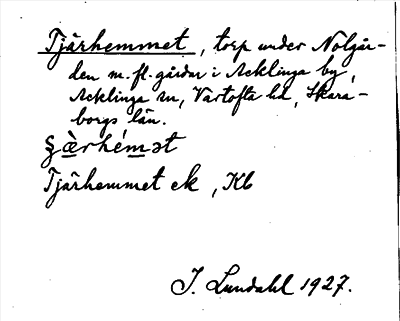 Tjärhemmet, torp under Nolgår-
den m. fl. gårdar i Acklinga by,
Acklinga sn, Vartofta hd, Skara-
borgs län.
ʂæ̀rhém̲ət
Tjärhemmet ek, Kb
J. Lundahl 1927.